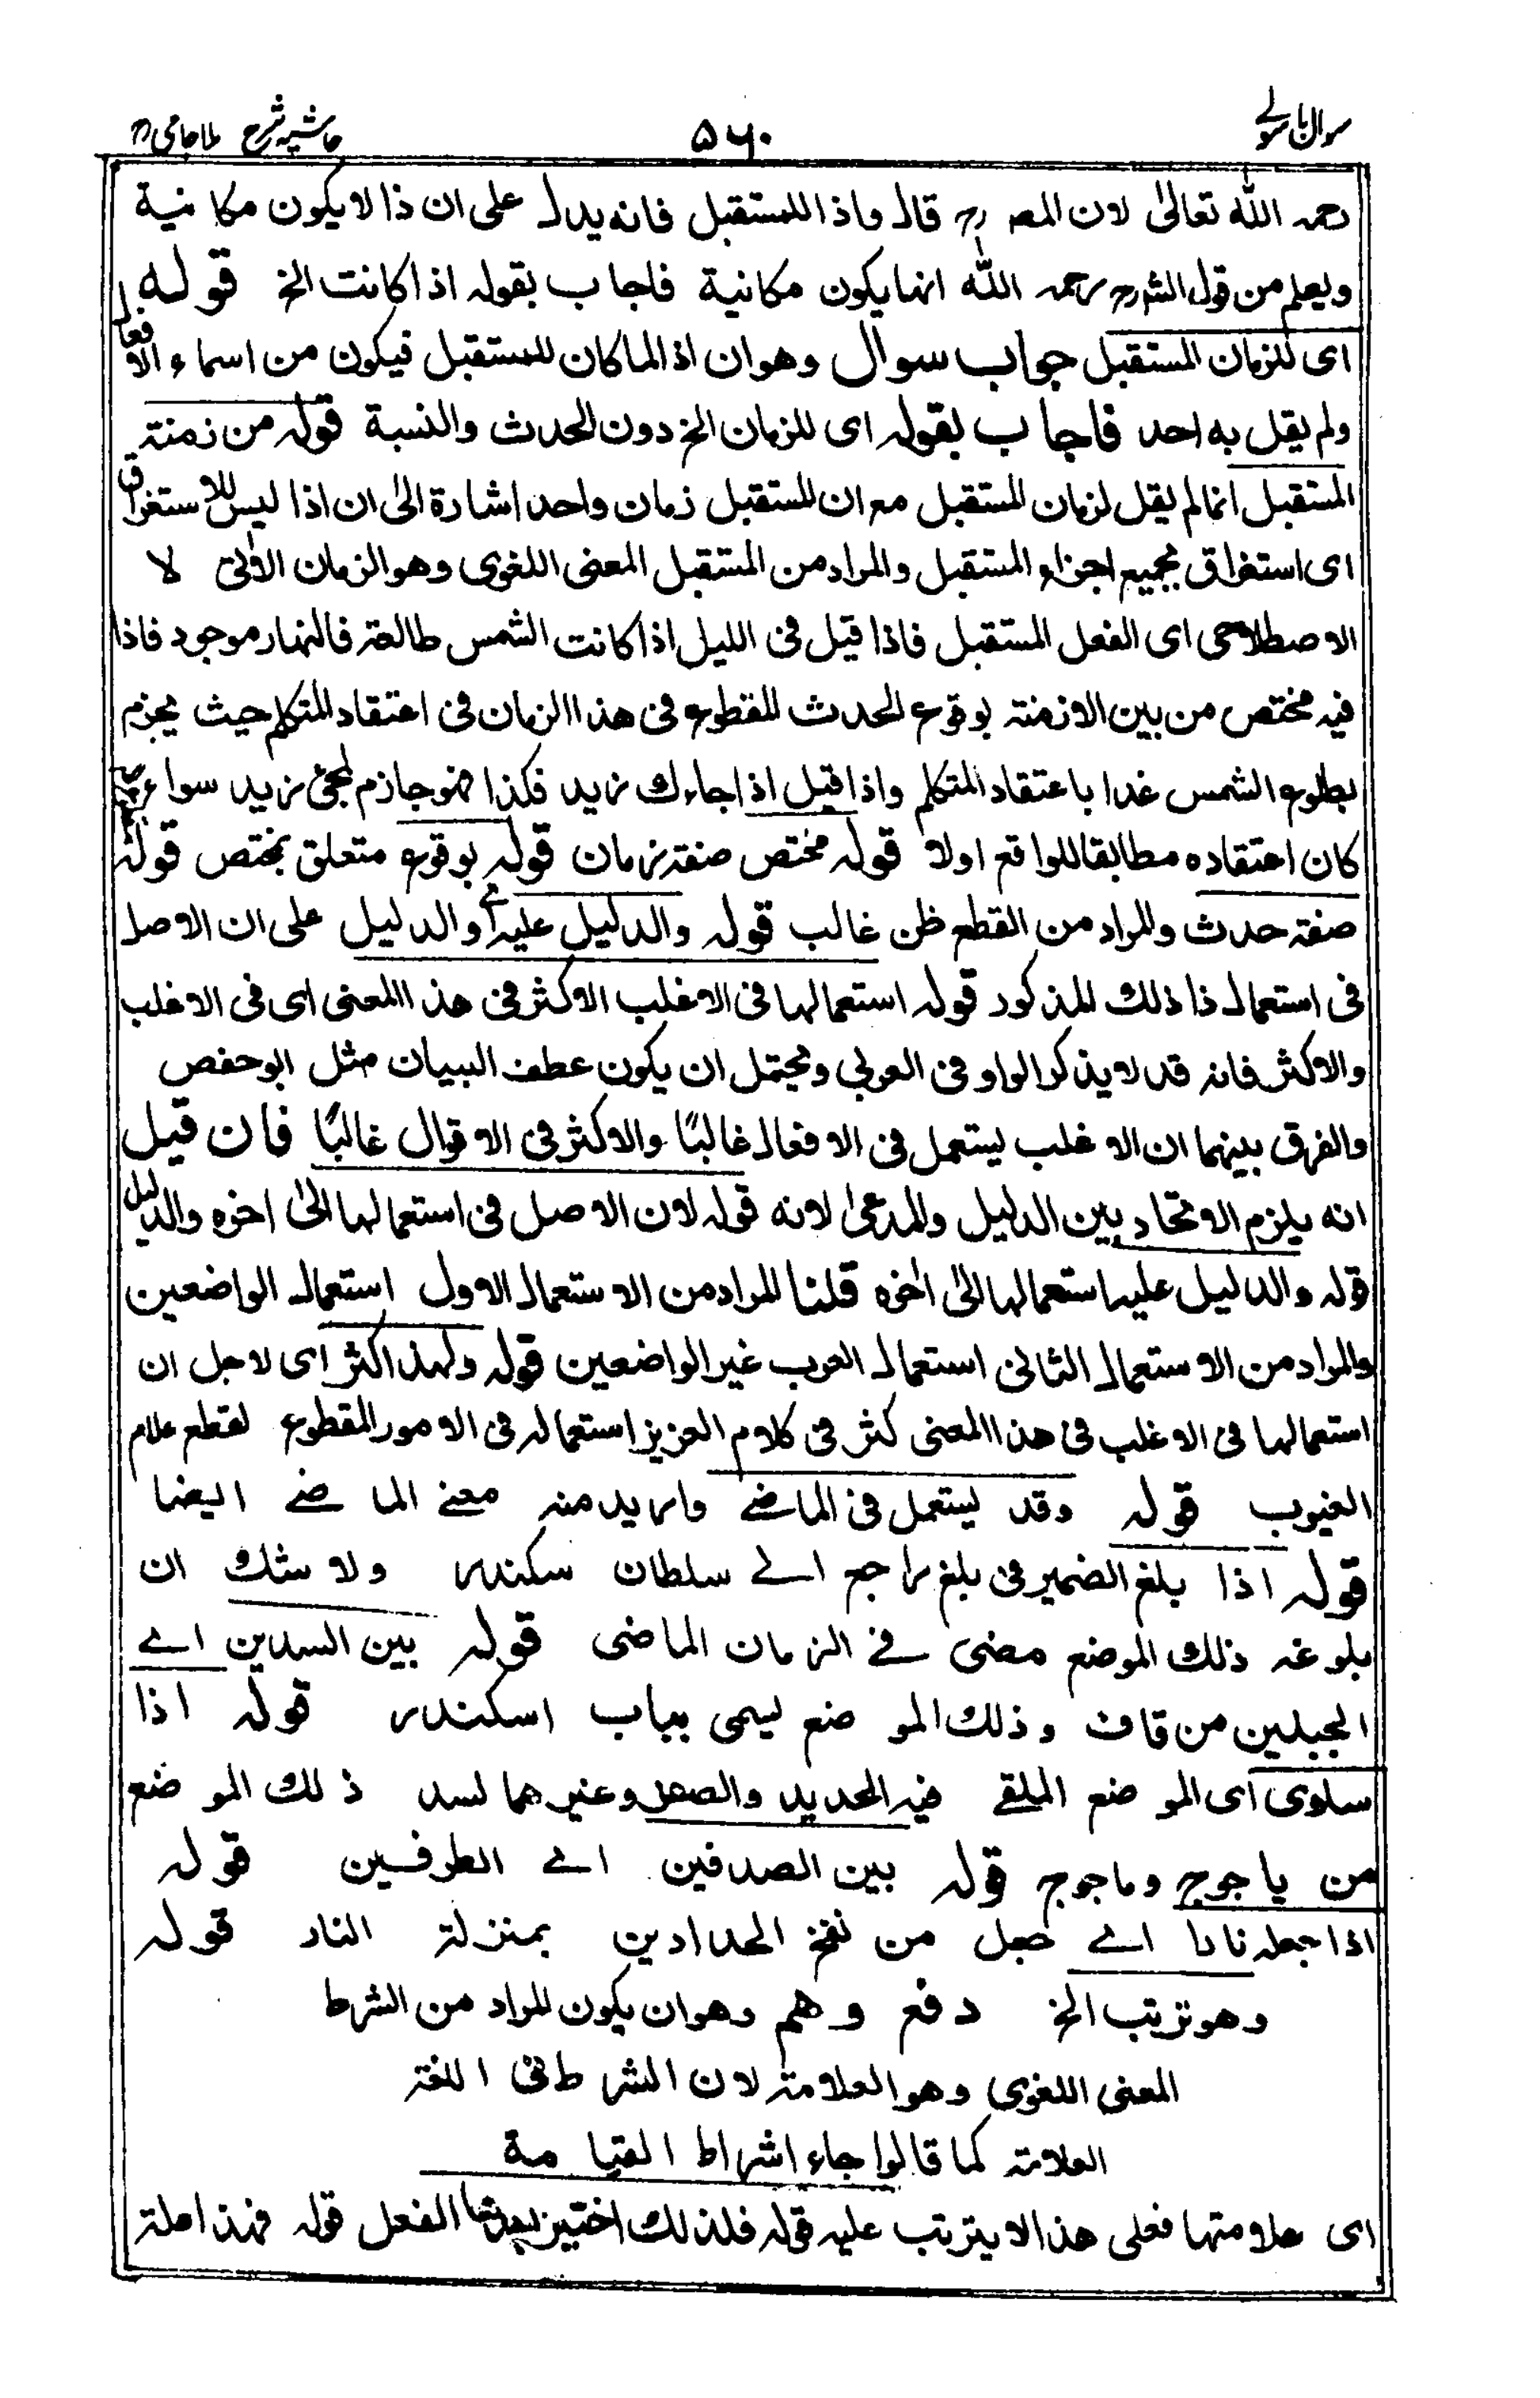 سوال باسولی ۵۶۰ حاشیہ شرح ملا جامی
رحمہ اللہ تعالیٰ لان المصـ رح قال واذا للمستقبل فانه یدل علی ان ذا لا یکون مکانیة
ویعلم من قول الشرح رحمہ اللہ انها یکون مکانیة فاجاب بقولہ اذا کانت الخ قولہ
ای للزمان المستقبل جواب سوال وهو ان اذا لما کان للمستقبل فیکون من اسماء الافعال
ولم یقل به احد فاجاب بقولہ ای للزمان الخ دون الحدث والنسبة قولہ من زمنتہ
المستقبل انما لم یقل لزمان المستقبل مع ان المستقبل زمان واحد اشارة الی ان اذا لیس للاستغراق
ای استغراق جمیع اجزاء المستقبل والمراد من المستقبل المعنی اللغوی وهو الزمان الاٰتی لا
الاصطلاحی ای الفعل المستقبل فاذا قیل فی اللیل اذا کانت الشمس طالعتہ فالنهار موجود فاذا
فیہ مختص من بین الازمنتہ بوقوع الحدث المقطوع فی هذا الزمان فی اعتقاد المتکلم حیث یجزم
بطلوع الشمس غدا باعتقاد المتکلم واذا قیل اذا جاءك زید فکذا فهو جازم لمجئ زید سواء
کان اعتقاده مطابقا للواقع اولا قولہ مختص صفتہ زمان قولہ بوقوع متعلق بمختص قولہ
صفتہ حدث والمراد من القطع ظن غالب قولہ والدلیل علیہ ای والدلیل علی ان الاصل
فی استعمال ذا ذلك المذکور قولہ استعمالها فی الاغلب الاکثر فی هذا المعنی ای فی الاغلب
والاکثر فانہ قد لا یذکر الواو فی العربی ویحتمل ان یکون عطف البیان مثل ابو حفص
والفرق بینهما ان الاغلب یستعمل فی الافعال غالبًا والاکثر فی الاقوال غالبًا فان قیل
انه یلزم الاتحاد بین الدلیل والمدعیٰ لانه قولہ لان الاصل فی استعمالها الیٰ اخره والدلیل
قولہ والدلیل علیہ استعمالها الیٰ اٰخره قلنا المراد من الاستعمال الاول استعمال الواضعین
والمراد من الاستعمال الثانی استعمال العرب غیر الواضعین قولہ ولهذا کثر ای لاجل ان
استعمالها فی الاغلب فی هذا المعنی کثر فی کلام العزیز استعمالہ فی الامور المقطوع لقطع علام
الغیوب قولہ وقد یستعمل فی الماضے وارید منہ معنے الماضے ایضا
قولہ اذا بلغ الضمیر فی بلغ راجع الے سلطان سکندر ولا شك ان
بلوغہ ذلك الموضع مضی فے الزمان الماضی قولہ بین السدین اے
الجبلین من قاف وذلك الموضع یسمی بباب اسکندر قولہ اذا
ساوی ای الموضع الملقے فیہ الحدید والصفر وغیرهما لسد ذلك الموضع
من یاجوج وماجوج قولہ بین الصدفین اے الطرفین قولہ
اذا جعلہ نارا اے جعل من نفخ الحدادین بمنزلۃ النار قولہ
وهو ترتب الخ دفع وهم وهو ان یکون المراد من الشرط
المعنی اللغوی وهو العلامتہ لان الشرط فی اللغتہ
العلامتہ کما قالوا جاء اشراط القیامة
ای علامتها فعلی هذا لا یترتب علیہ قولہ فلذلك اختیر بعدها الفعل قولہ فهذا علتہ